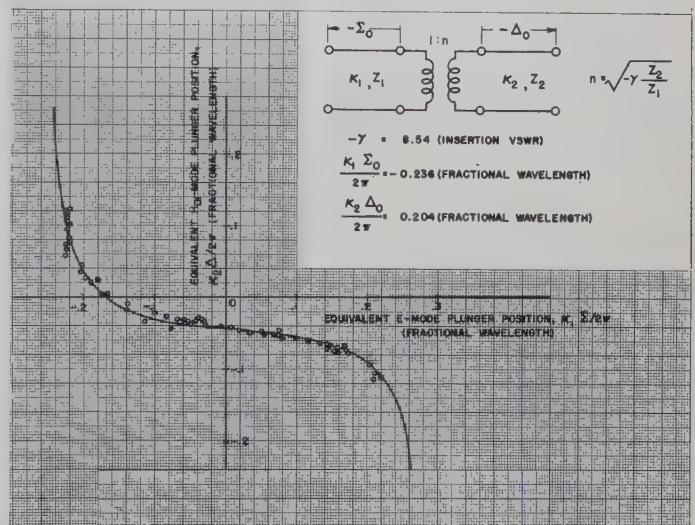 -Σ₀
1:n
-Δ₀
K₁, Z₁
K₂, Z₂
n = √(-γ Z₂/Z₁)
-γ = 8.54 (INSERTION VSWR)
K₁ Σ₀/2π = -0.236 (FRACTIONAL WAVELENGTH)
K₂ Δ₀/2π = 0.204 (FRACTIONAL WAVELENGTH)
EQUIVALENT H₀₁-MODE PLUNGER POSITION,
K₂Δ/2π (FRACTIONAL WAVELENGTH)
0
EQUIVALENT E-MODE PLUNGER POSITION, K₁ Σ/2π
(FRACTIONAL WAVELENGTH)